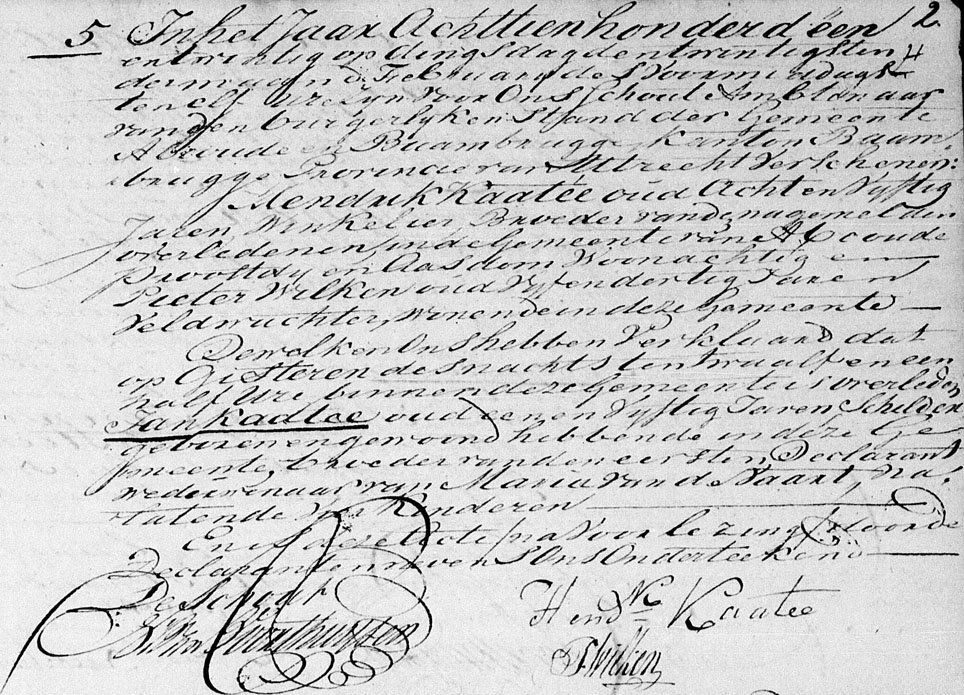 2
5 In het Jaar Achttienhonderd een
en twintig op dingsdag den twintigsten
der maand Februarij des Voormiddags
ten elf Ure zyn voor Ons Schout Ambtenaar
van den burgerlyken Stand der Gemeente
Abcoude en Baambrugge, Kanton Baam-
brugge Provincie van Utrecht Verschenen:
Hendrik Kaatee oud Acht en Vyftig
Jaren Winkelier Broeder van de nagemelden
overledenen, in de Gemeente van Abcoude
proostdy en Aasdom Woonachtig en
Pieter Wilken oud Vyf en dertig Jaren
Veldwachter, wonende in deze Gemeente
Dewelken Ons hebben Verklaard dat
op Gisteren des nachts ten twaalf en een
half Ure, binnen deze Gemeente is overleden
Jan Kaatee oud een en Vyftig Jaren, Schilder
geboren en gewoond hebbende in deze Ge
meente, broeder van den eersten Declarant
weduwenaar van Maria Van der Vaart, na-
latende Kinderen
En is deze acte, na Voorlezing, door de
Declaranten neven Ons Onderteekend
De Schout
Hend.k Kaatee
P. Wilken